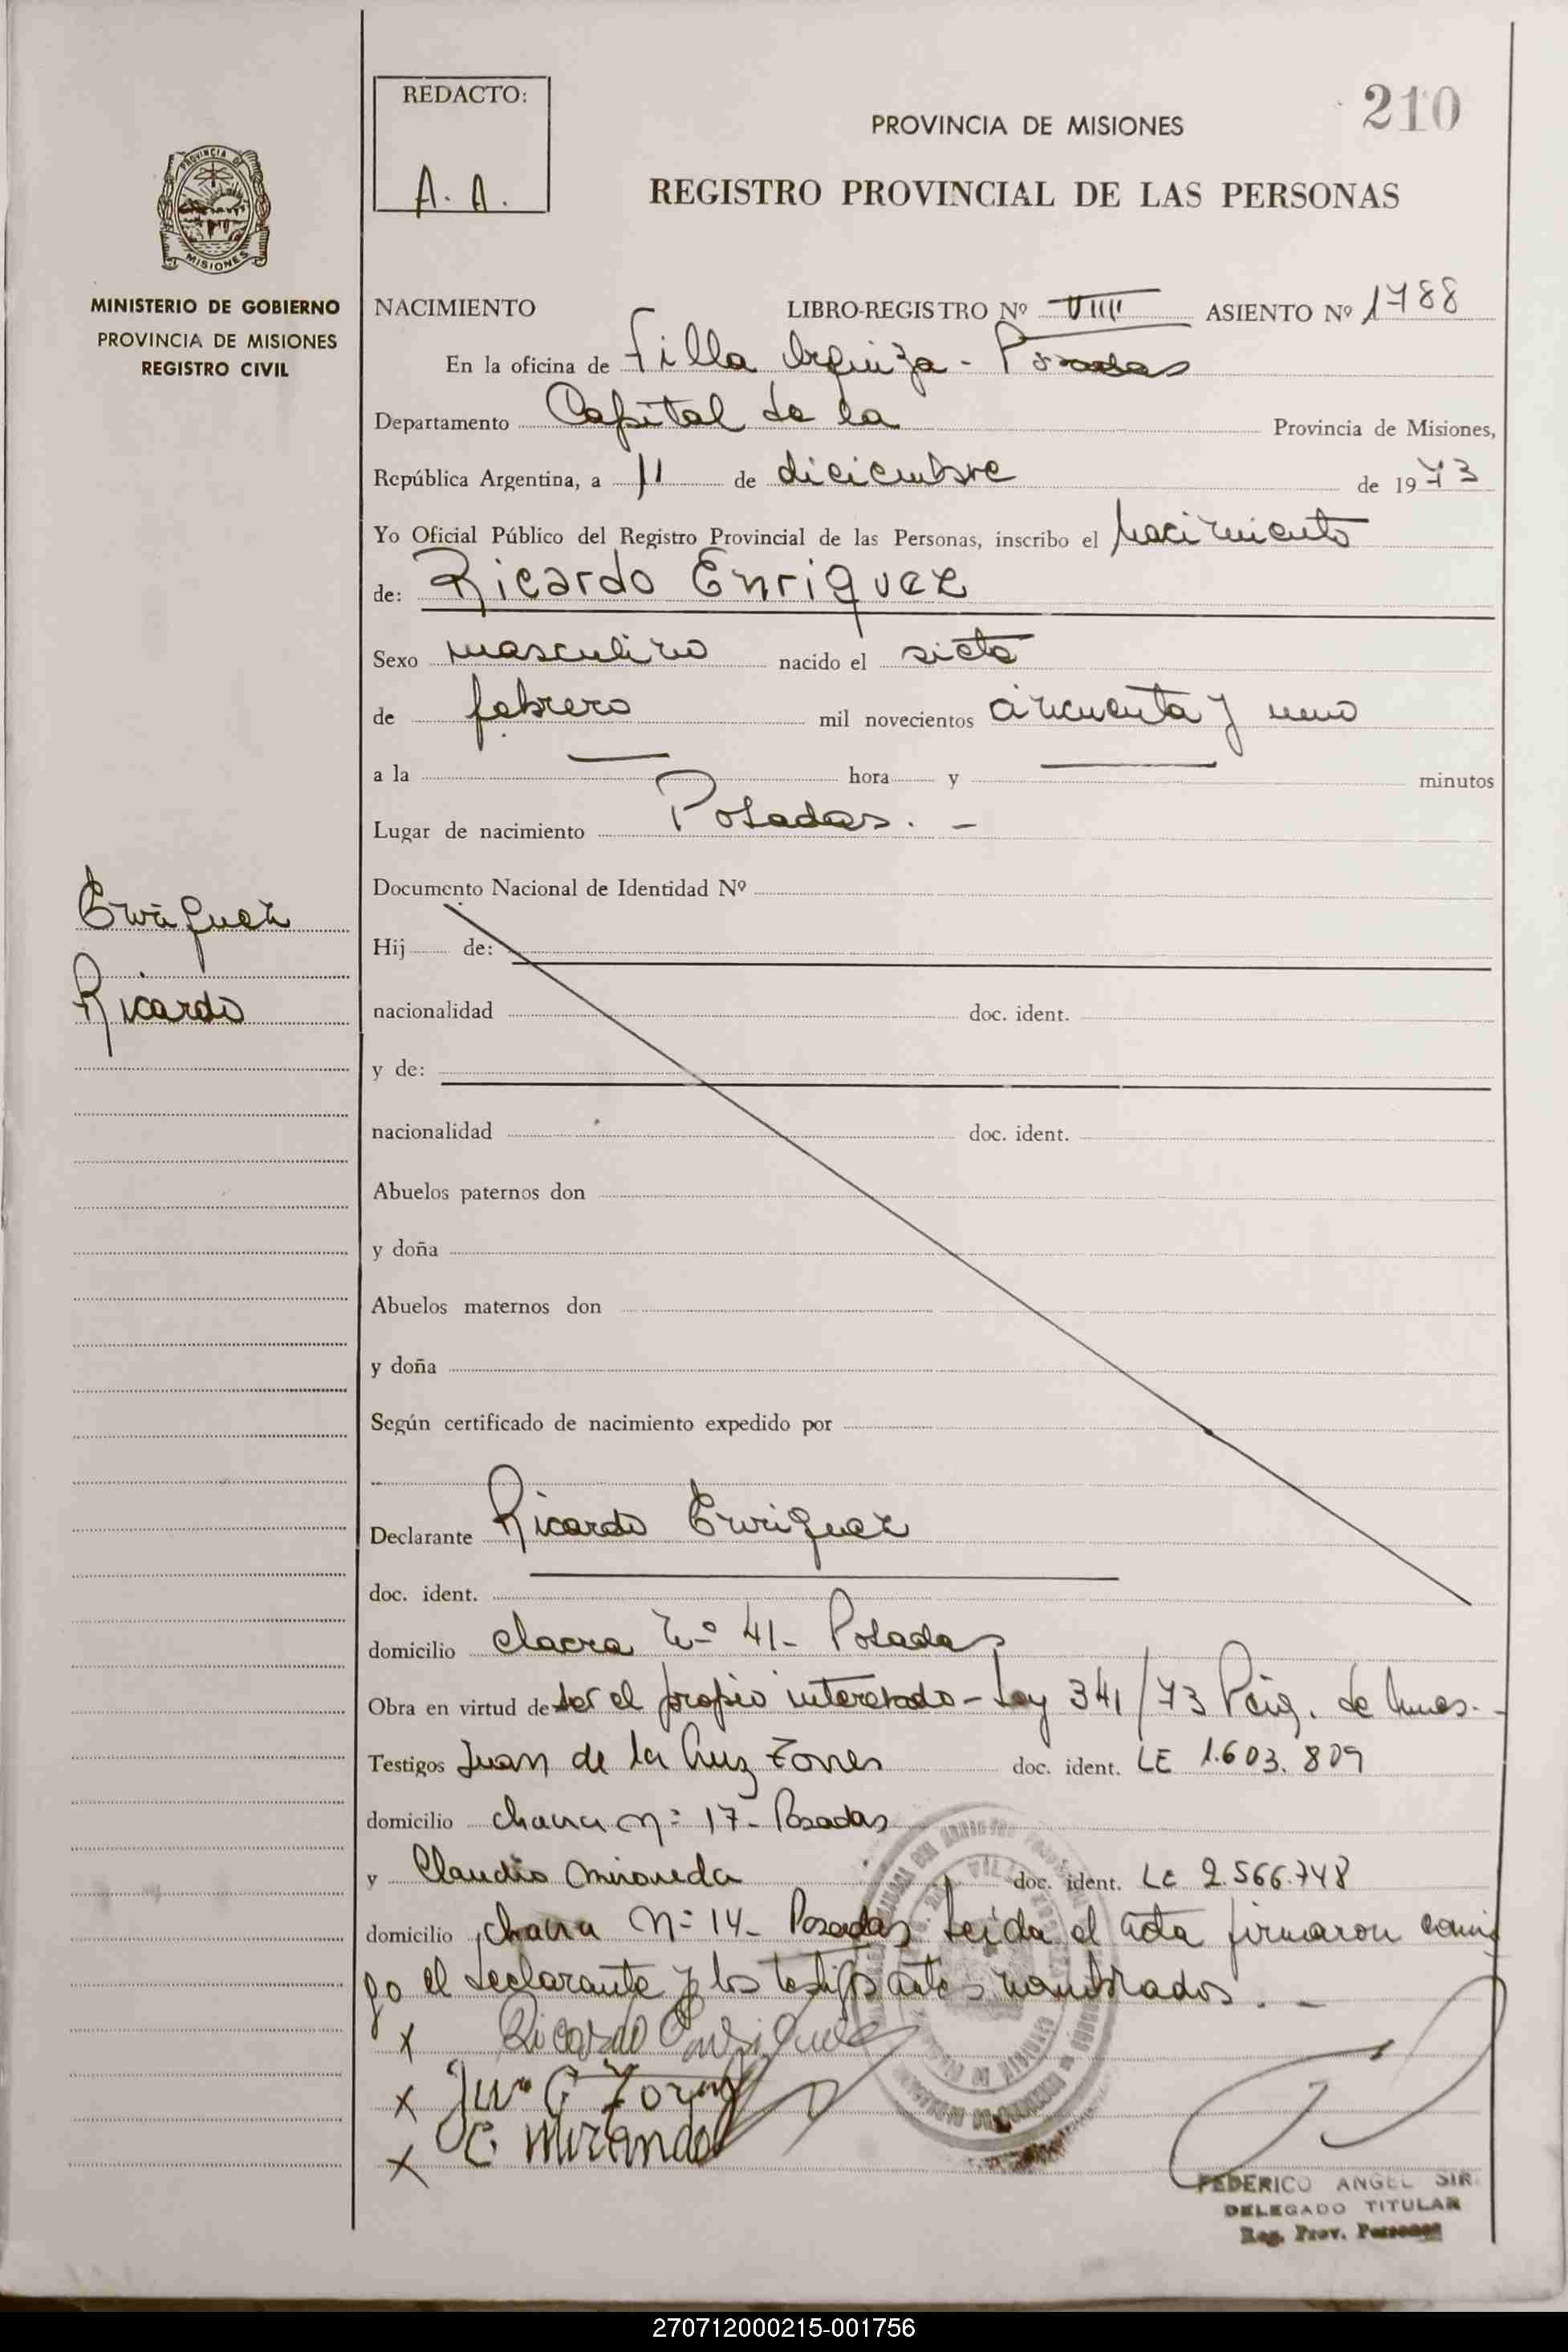 REDACTO:
A. A.
210
PROVINCIA DE MISIONES
REGISTRO PROVINCIAL DE LAS PERSONAS
PROVINCIA DE
MISIONES
MINISTERIO DE GOBIERNO
PROVINCIA DE MISIONES
REGISTRO CIVIL
NACIMIENTO LIBRO-REGISTRO Nº VIIII ASIENTO Nº 1788
En la oficina de Villa Urquiza - Posadas
Departamento Capital de la Provincia de Misiones,
República Argentina, a 11 de diciembre de 1973
Yo Oficial Público del Registro Provincial de las Personas, inscribo el nacimiento
de: Ricardo Enriquez
Sexo masculino nacido el siete
de febrero mil novecientos cincuenta y uno
a la hora y minutos
Lugar de nacimiento Posadas. -
Documento Nacional de Identidad Nº
Enriquez
Ricardo
Hij de:
nacionalidad doc. ident.
y de:
nacionalidad doc. ident.
Abuelos paternos don
y doña
Abuelos maternos don
y doña
Según certificado de nacimiento expedido por
Declarante Ricardo Enriquez
doc. ident.
domicilio chacra Nº 41- Posadas
Obra en virtud de ser el propio interesado - Ley 341/73 de
Testigos Juan de la Cruz Torres doc. ident. LE 1.603.809
domicilio chacra nº 17- Posadas
y Claudio Miranda doc. ident. LE 2.566.748
domicilio chacra Nº 14- Posadas Leida el acta firmaron conmi
go el declarante y los testigos antes nombrados. -
x Ricardo Enriquez
x Juan C Torres
x C. Miranda
FEDERICO ANGEL SIR
DELEGADO TITULAR
Reg. Prov. Personas
270712000215-001756